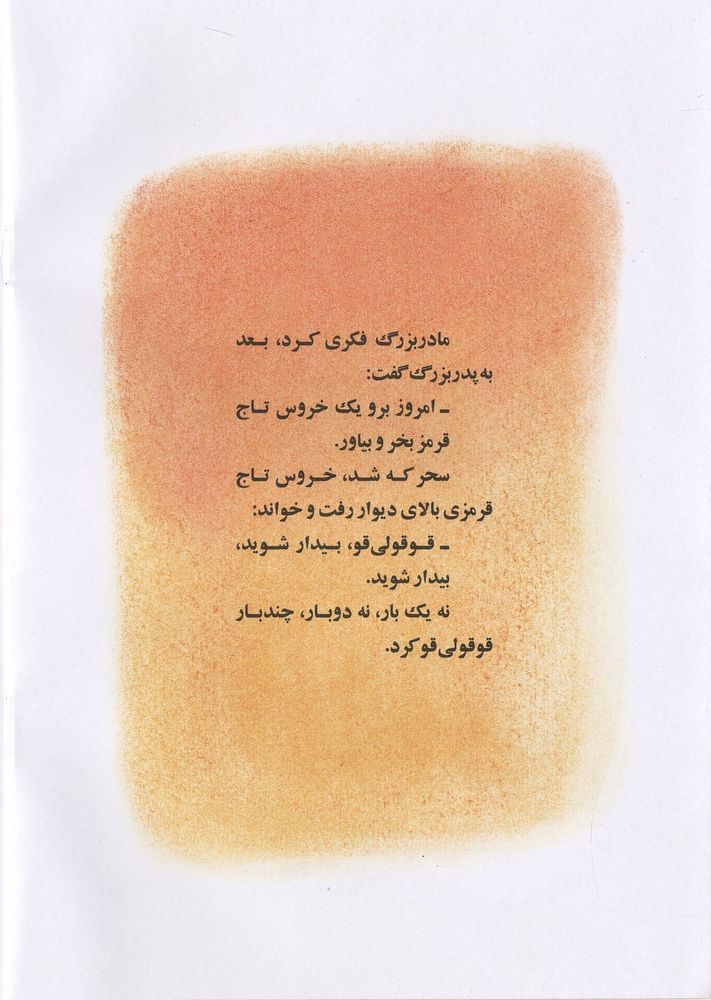 مادربزرگ فکری کرد، بعد
به پدربزرگ گفت:
ـ امروز برو یک خروس تاج
قرمز بخر و بیاور.
سحر که شد، خروس تاج
قرمزی بالای دیوار رفت و خواند:
ـ قوقولی‌قو، بیدار شوید،
بیدار شوید.
نه یک بار، نه دوبار، چندبار
قوقولی‌قو کرد.